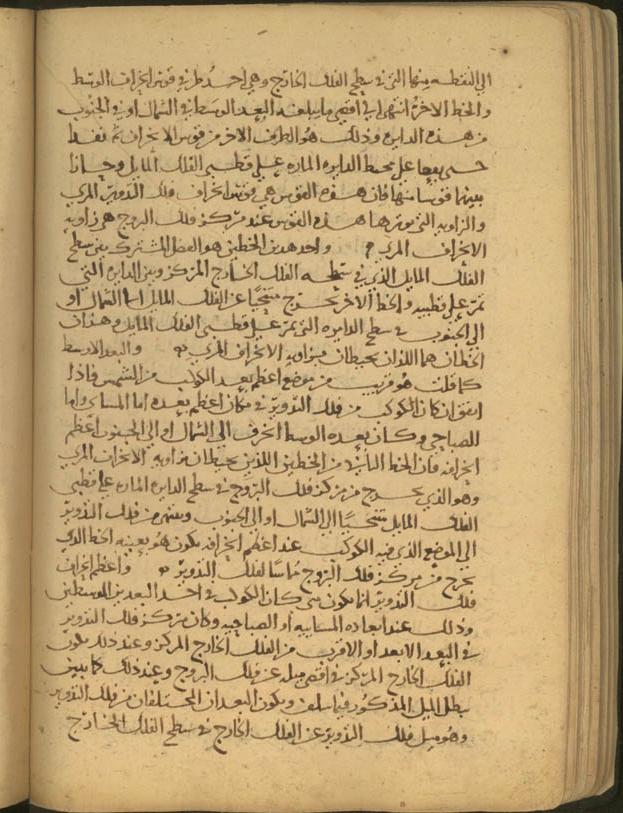 الى النقطه منها التى فى سطح الفلك الخارج وهى احد طرفى قوس انحراف الوسط
والخط الاخر انتهى الى اقصى ما يبلغه البعد الوسط فى الشمال او فى الجنوب
من هذه الدايره وذلك هو الطرف الاخر من قوس الانحراف ثم نفذا
حتى على محيط الدايره الماره على قطبى الفلك المايل وحازا
بينهما قوسا منها فان هذه القوس هى قوس انحراف فلك التدوير المرى
والزاويه التى يوترها هذه القوس عند مركز فلك البروج هى زاويه
الانحراف المرى واحد هذين الخطين هو الفصل المشترك بين سطح
الفلك المايل الذى فى سطحه الفلك الخارج المركز وبين الدايره التى
تمر على قطبيه والخط الاخر يخرج متنحيا عن الفلك المايل اما الى الشمال او
الى الجنوب فى سطح الدايره التى تمر على قطبى الفلك المايل وهذان
الخطان هما اللذان يحيطان بزاويه الانحراف المرى والبعد الاوسط
كما قلت هو قريب من موضع اعظم بعد الكوكب من الشمس فاذا
اتفق ان كان الكوكب من فلك التدوير فى مكان اعظم بعده اما المسائى واما
الصباحى وكان بعده الوسط انحرف الى الشمال او الى الجنوب اعظم
انحرافه فان الخط الثانى من الخطين اللذين يحيطان بزاويه الانحراف المرى
وهو الذى يخرج من مركز فلك البروج فى سطح الدايره الماره على قطبى
الفلك المايل متنحيا الى الشمال او الى الجنوب وينتهى من فلك التدوير
الى الموضع الذى فيه الكوكب عند اعظم انحرافه يكون هو بعينه الخط الذى
يخرج من مركز فلك البروج مماسا لفلك التدوير واعظم انحراف
فلك التدوير انما يكون متى كان الكوكب فى احد البعدين الاوسطين
وذلك عند ابعاده المسائيه او الصباحيه وكان مركز فلك التدوير
فى البعد الابعد او الاقرب من الفلك الخارج المركز وعند ذلك يكون
الفلك الخارج المركز فى اقصى ميله عن فلك البروج وعند ذلك كما تبين
يبطل الميل المذكور فيما سلف ويكون البعدان المختلفان من فلك التدوير
وهو ميل فلك التدوير عن الفلك الخارج فى سطح الفلك الخارج